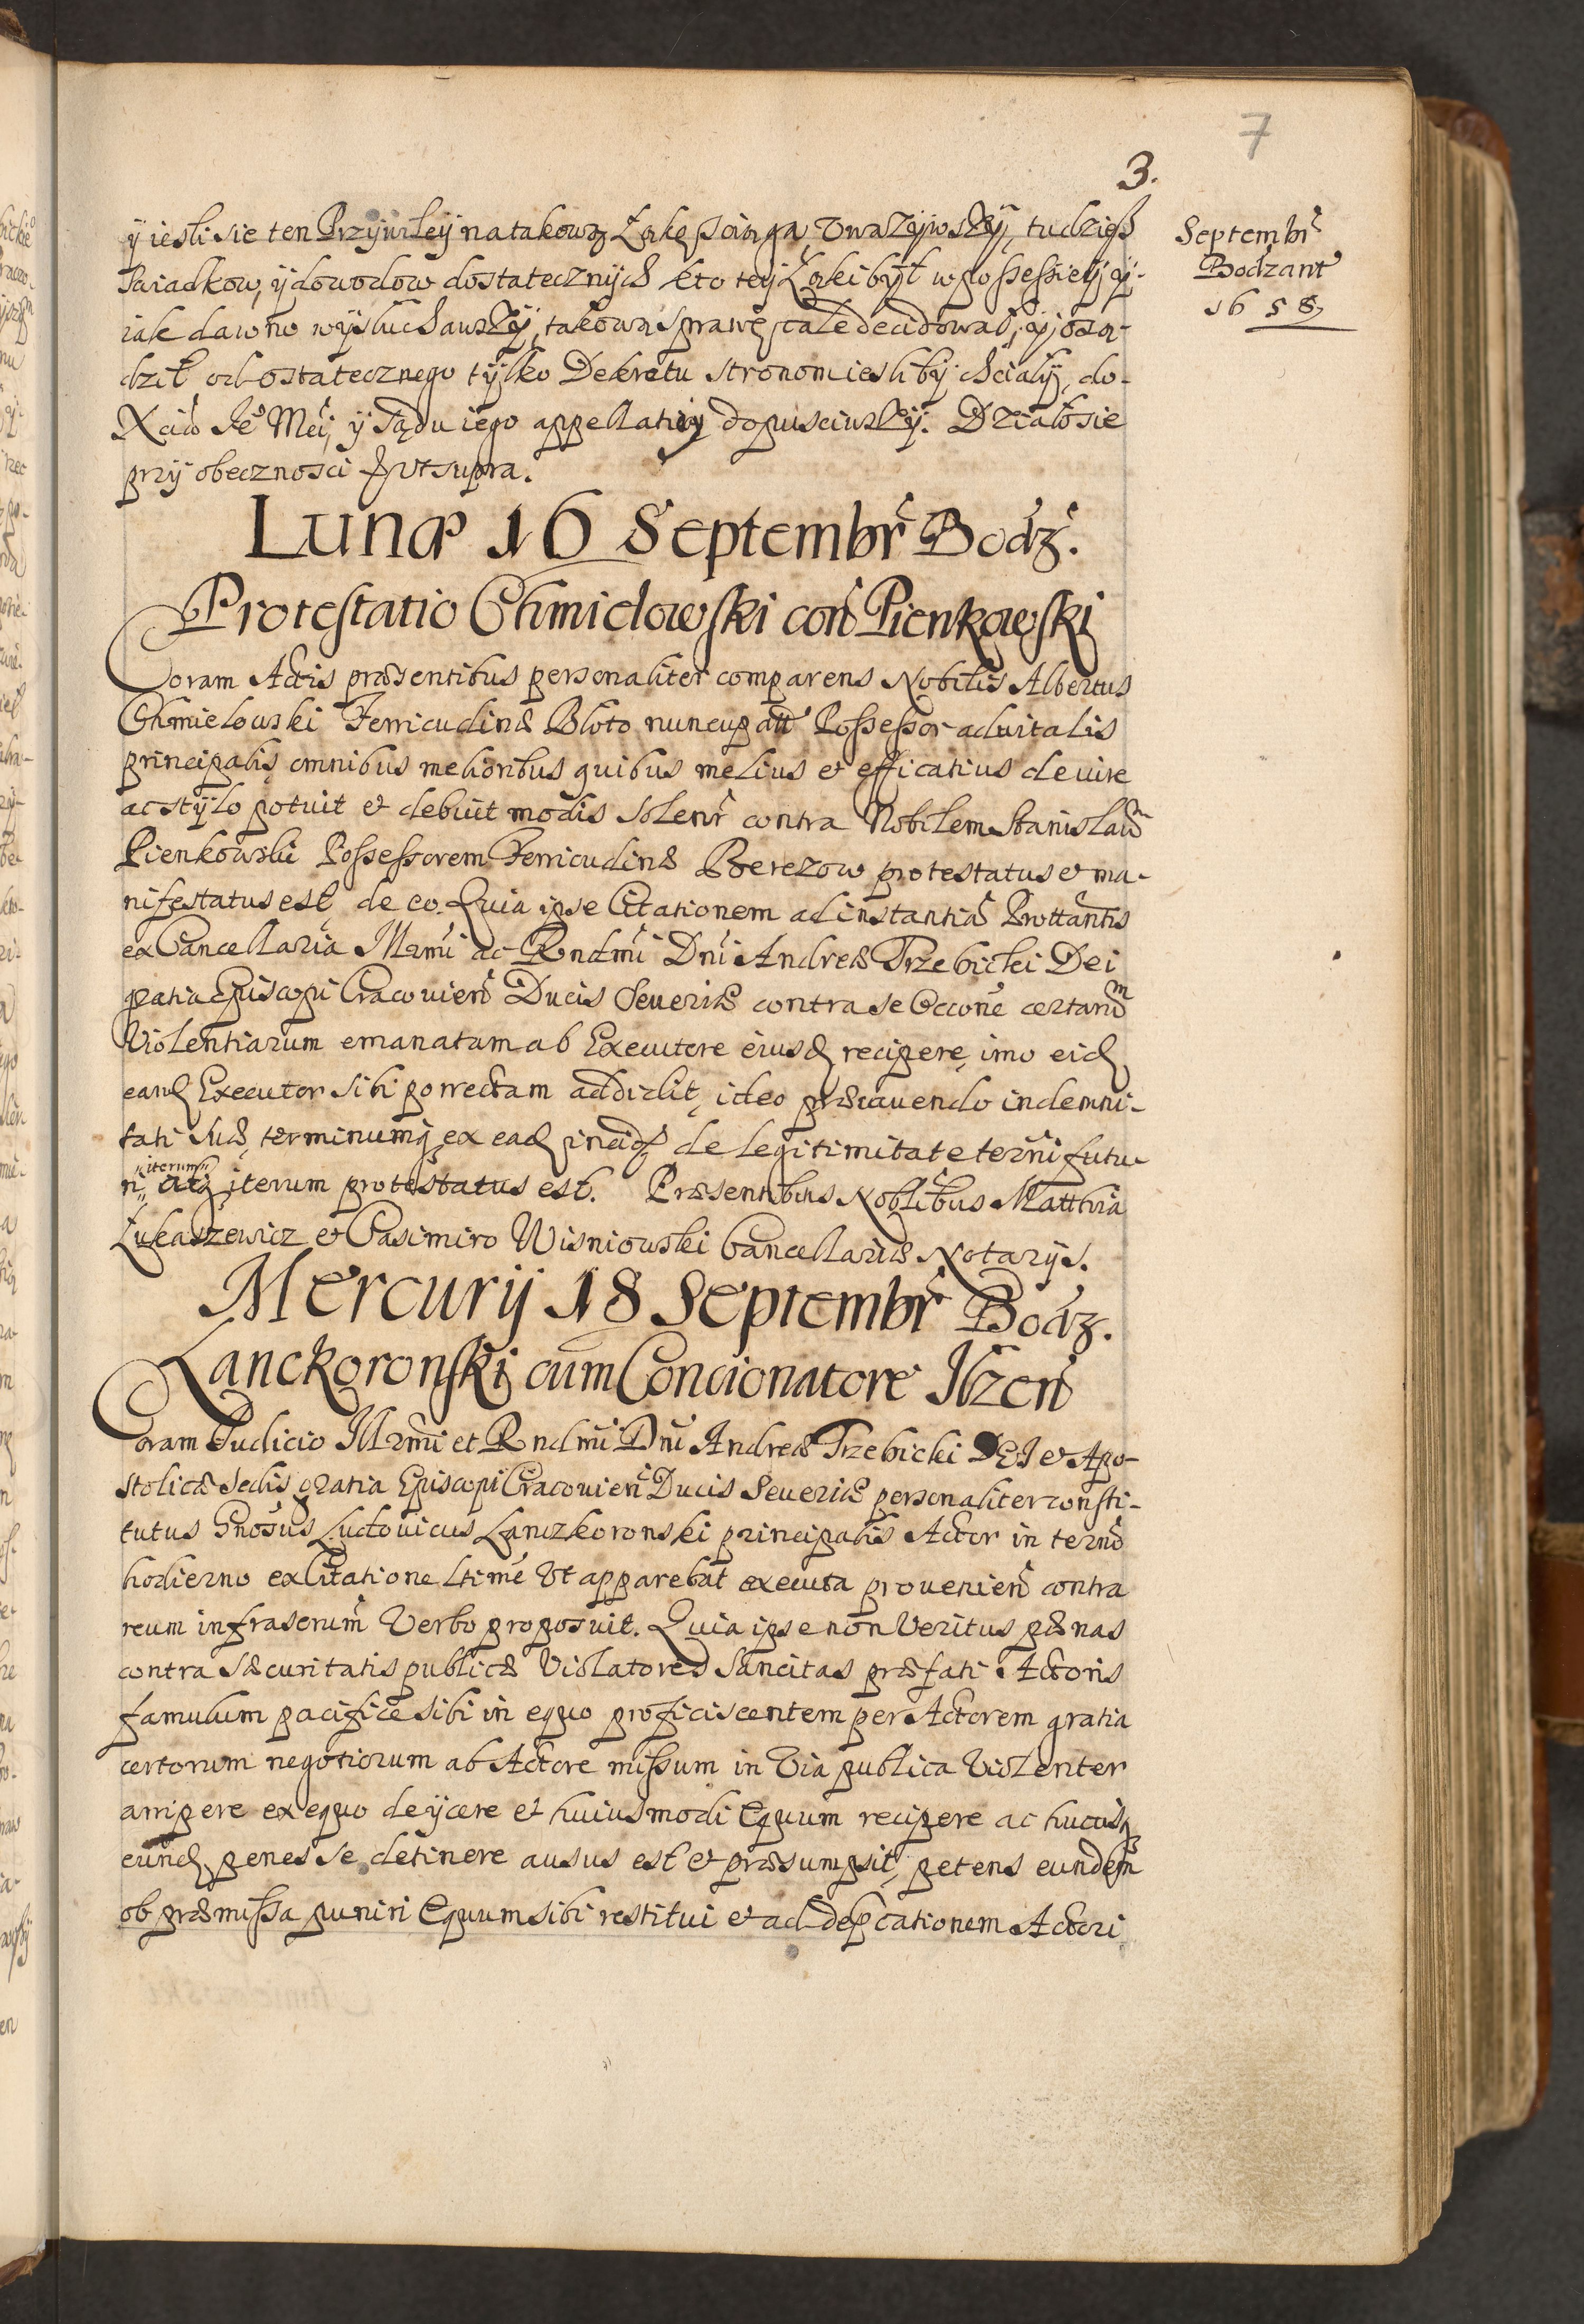 7
3.
Septembr
Bodzant
1658
ÿ iesli sie ten Przÿwileÿ na takową Łąkę sciąga, Vwazÿwszÿ, tudziesz
Swiadkow, ÿ dowodow dostatecznÿch kto teÿ Łąki bÿł w possessieÿ ÿ
iak dawno wÿsłuchawszÿ, takową sprawę cale decidował, ÿ osą-
dził od ostatecznego tÿlko Dekretu stronom iesliby chciałÿ, do-
Xcia Je° Mci, ÿ Sądu iego appellatią dopusciwszÿ. Działo sie
przÿ obecznosci ut supra.
Lunæ 16 Septembr Bodz.
Protestatio Chmielowski con Pienkowski
Coram Actis præsentibus personaliter comparens Nobilis Albertus
Chmielowski Ferricudinæ Błoto nuncupatæ Possessor aduitalis
principalis omnibus melioribus quibus melius et efficatius de iure
ac stÿlo potuit et debuit modis solenr contra Nobilem Stanislaum
Pienkowski Possessorem Ferricudinæ Berezow protestatus et ma-
nifestatus est, de eo. Quia ipse Citationem ad instantia Prottantis
ex Cancellaria Illrmi ac Rndmi Dni Andreæ Trzebicki Dei
gratia Episcopi Cracouien Ducis Seueriæ contra se Occone certarum
Violentiarum emanatam ab Executore eiusd recipere, imo eid
eand Executor sibi porrectam addidit, ideo præcauendo indemni-
tati suæ, terminumq ex ead incid de legitimitate termi futu-
ri "iterum" atq iterum protestatus est. Præsentibus Noblibus Matthia
Łukaszewicz et Casimiro Wisniowski Cancellariæ Notarijs.
Mercurij 18 Septembr Bodz.
Lanckoronski cum Concionatore Ilzen
Coram Judicio Illrmi et Rndmi Dni Andreæ Trzebicki DEI et Apo-
stolicæ Sedis gratia Episcopi Cracouien Ducis Seueriæ personaliter consti-
tutus Gnosus Ludouicus Lanczkoronski principalis Actor in termo
hodierno ex Citatione ltime Vt apparebat executa prouenien contra
reum infrascrum Verbo proposuit. Quia ipse non Veritus pænas
contra sæcuritatis publicæ Violatores sancitas præfati Actoris
famulum pacifice sibi in equo proficiscentem per Actorem gratia
certorum negotiorum ab Actore missum in Via publica Violenter
arripere ex equo deÿcere et huiusmodi Equum recipere ac hucusq
eund penes se detinere ausus est et præsumpsit, petens eundem
ob præmissa puniri Equum sibi restitui et ad depcationem Actori